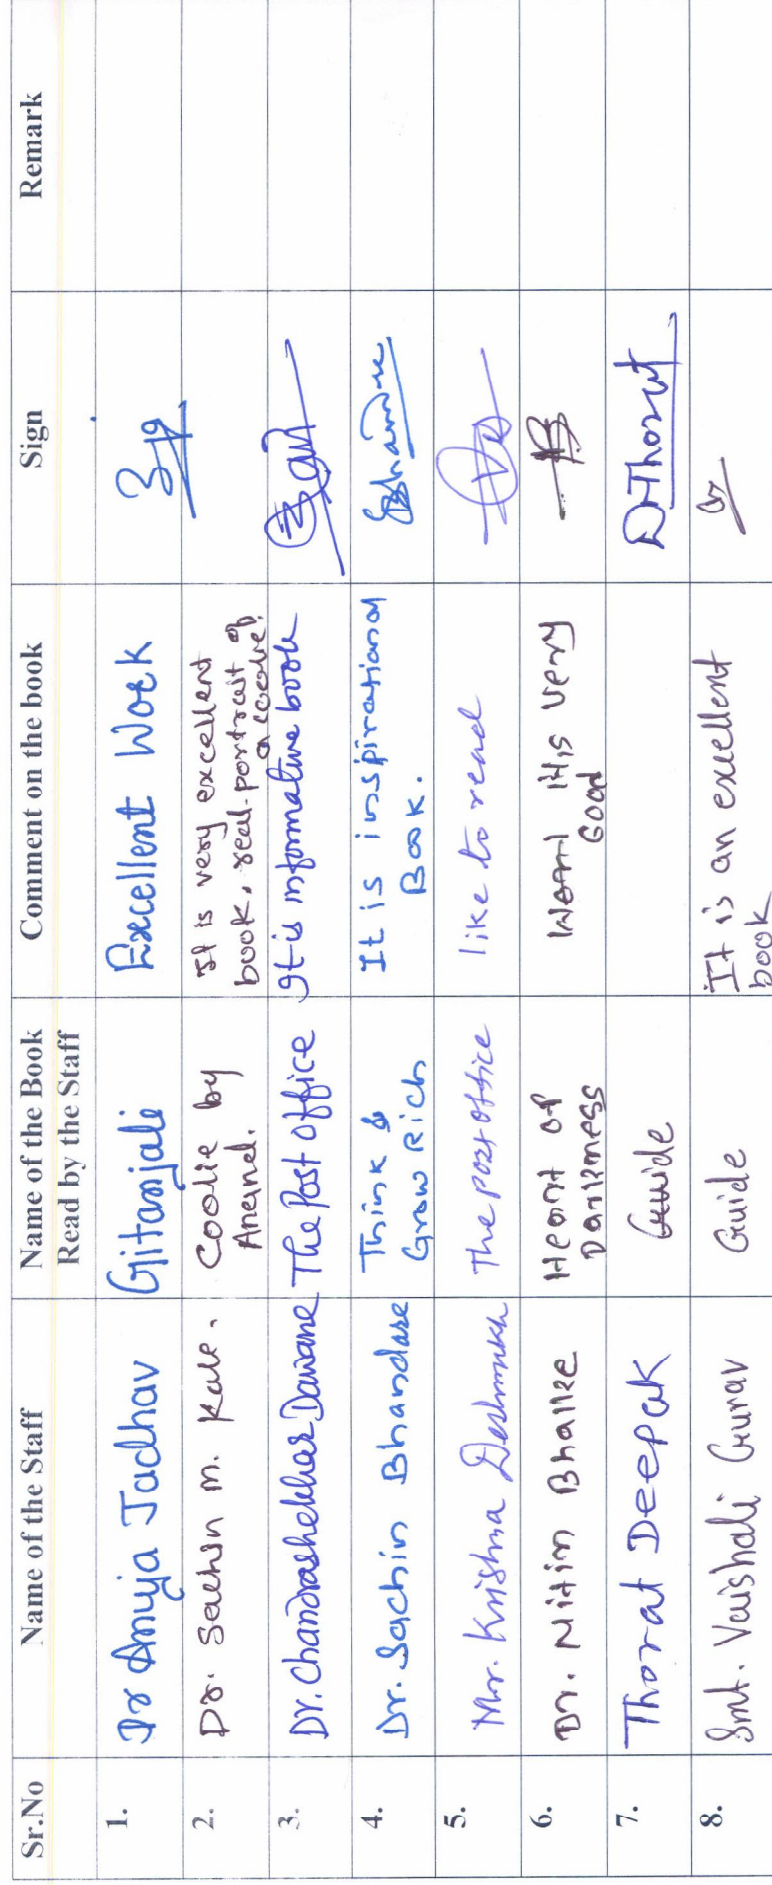 Sr.No Name of the Staff Name of the Book Comment on the book Sign Remark
Read by the Staff
1. Dr Anuja Jadhav Gitanjali Excellent Work
2. Dr. Sachin M. Kale. Coolie by It is very excellent
Anand. book, real-portrait of
a coolie.
3. Dr. Chandrashekhar Dawane The Post Office It is informative book
4. Dr. Sachin Bhandare Think & It is inspirational
Grow Rich Book.
5. Mr. Krishna Deshmukh The post office like to read
6. Dr. Nitin Bhalke Heart of It is very
Darkness Good
7. Thorat Deepak Guide DThorat
8. Smt. Vaishali Gurav Guide It is an excellent
book